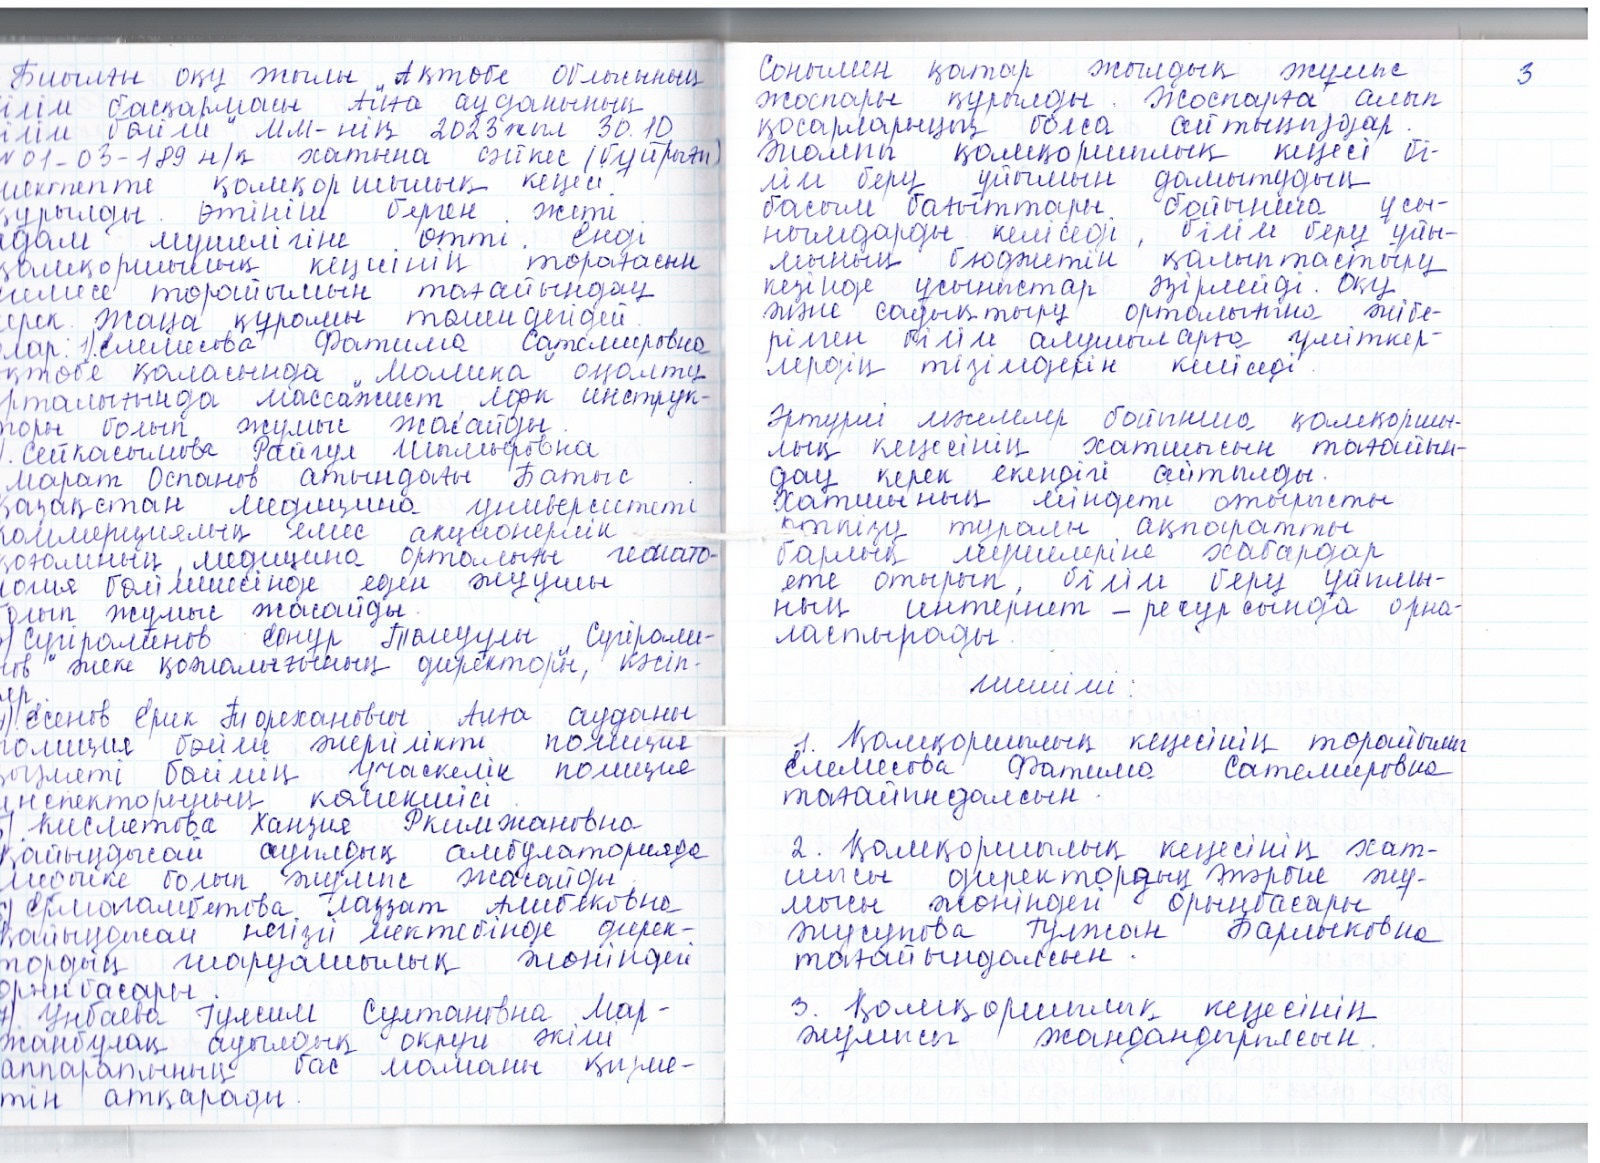 Биылғы оқу жылы „Ақтөбе облысының
ілім басқармасы Алға ауданының
ілім бөлімі" ММ-нің 2023 жыл 30.10
№01-03-189 н/қ хатына сәйкес (бұйрығы)
мектепте қамқоршылық кеңесі
құрылды. Өтініш берген жеті
адам мүшелігіне өтті. Енді
қамқоршылық кеңесінің төрағасын
немесе төрайымын тағайындау
керек. Жаңа құрамы төмендегідей
олар: 1) Елемесова Фатима Сатемировна
қтөбе қаласында „Малика" оңалту
орталығында массажист ЛФК инструк-
торы болып жұмыс жасайды.
). Сейкасымова Райгул Шымыровна
Марат Оспанов атындағы Батыс
Қазақстан медицина университеті
коммерциялық емес акционерлік
қоғамның медицина орталығы гемато-
логия бөлімшесінде еден жуушы
болып жұмыс жасайды.
) Сүгіралинов Өнұр „Сүгірали-
нов" жеке қожалығының директоры, кәсіп-
кер.
) Есенов Ерик Төреханович Алға ауданы
полиция бөлімі жергілікті полиция
қызметі бөлімнің учаскелік полиция
инспекторының көмекшісі.
5) Кисметова Ханзия Ркимжановна
Қайыңдысай ауылдық амбулаторияда
медбике болып жұмыс жасайды.
6) Ермагамбетова Ләззат Алибековна
Қайыңдысай негізгі мектебінде дирек-
тордың шаруашылық жөніндегі
орынбасары.
7). Унбаева Гулсим Султановна Мар-
жанбұлақ ауылдық округі әкімі
аппаратының бас маманы қызме-
тін атқарады.
3
Сонымен қатар жылдық жұмыс
жоспары құрылды. Жоспарға алып
қосарларыңыз болса айтыңыздар.
Жалпы қамқоршылық кеңесі бі-
лім беру ұйымын дамытудың
басым бағыттары бойынша ұсы-
нымдарды келіседі, білім беру ұйы-
мының бюджетін қалыптастыру
кезінде ұсыныстар әзірлейді. Оқу
және сауықтыру орталығына жібе-
рілген білім алушыларға үміткер-
лердің тізімдерін келіседі.
Әртүрлі мәселелер бойынша қамқоршы-
лық кеңесінің хатшысын тағайын-
дау керек екендігі айтылды.
Хатшының міндеті отырысты
өткізу туралы ақпаратты
барлық мүшелеріне хабардар
ете отырып, білім беру ұйымы-
ның интернет – ресурсында орна-
ластырады.
Шешімі:
1. Қамқоршылық кеңесінің төрайымы
Елемесова Фатима Сатемировна
тағайындалсын.
2. Қамқоршылық кеңесінің хат-
шысы директордың тәрбие жұ-
мысы жөніндегі орынбасары
Жусупова Гулжан Барлыковна
тағайындалсын.
3. Қамқоршылық кеңесінің
жұмысы жандандырылсын.